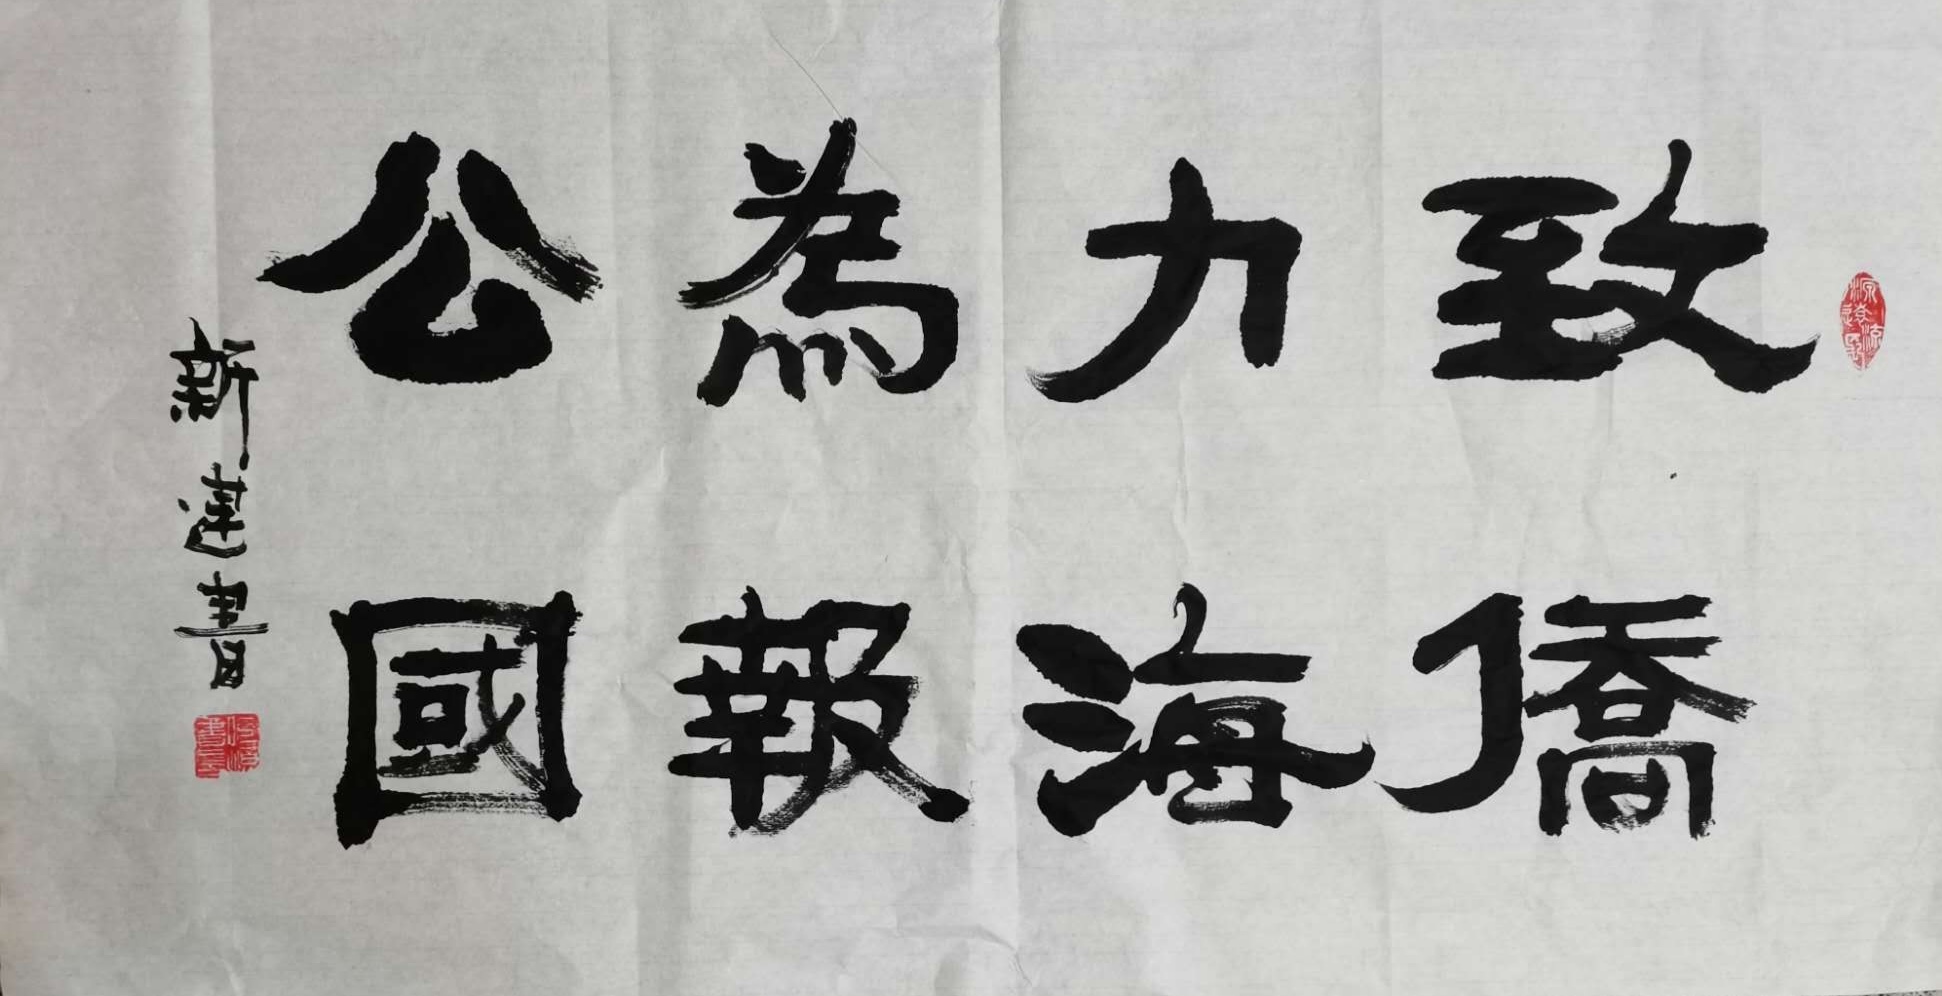 致力為公
僑海報國
新建書